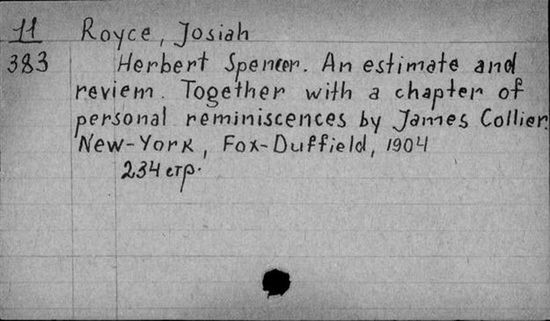 11 Royce, Josiah
383 Herbert Spencer. An estimate and
reviem. Together with a chapter of
personal reminiscences by James Collier.
New-York, Fox-Duffield, 1904
234 стр.